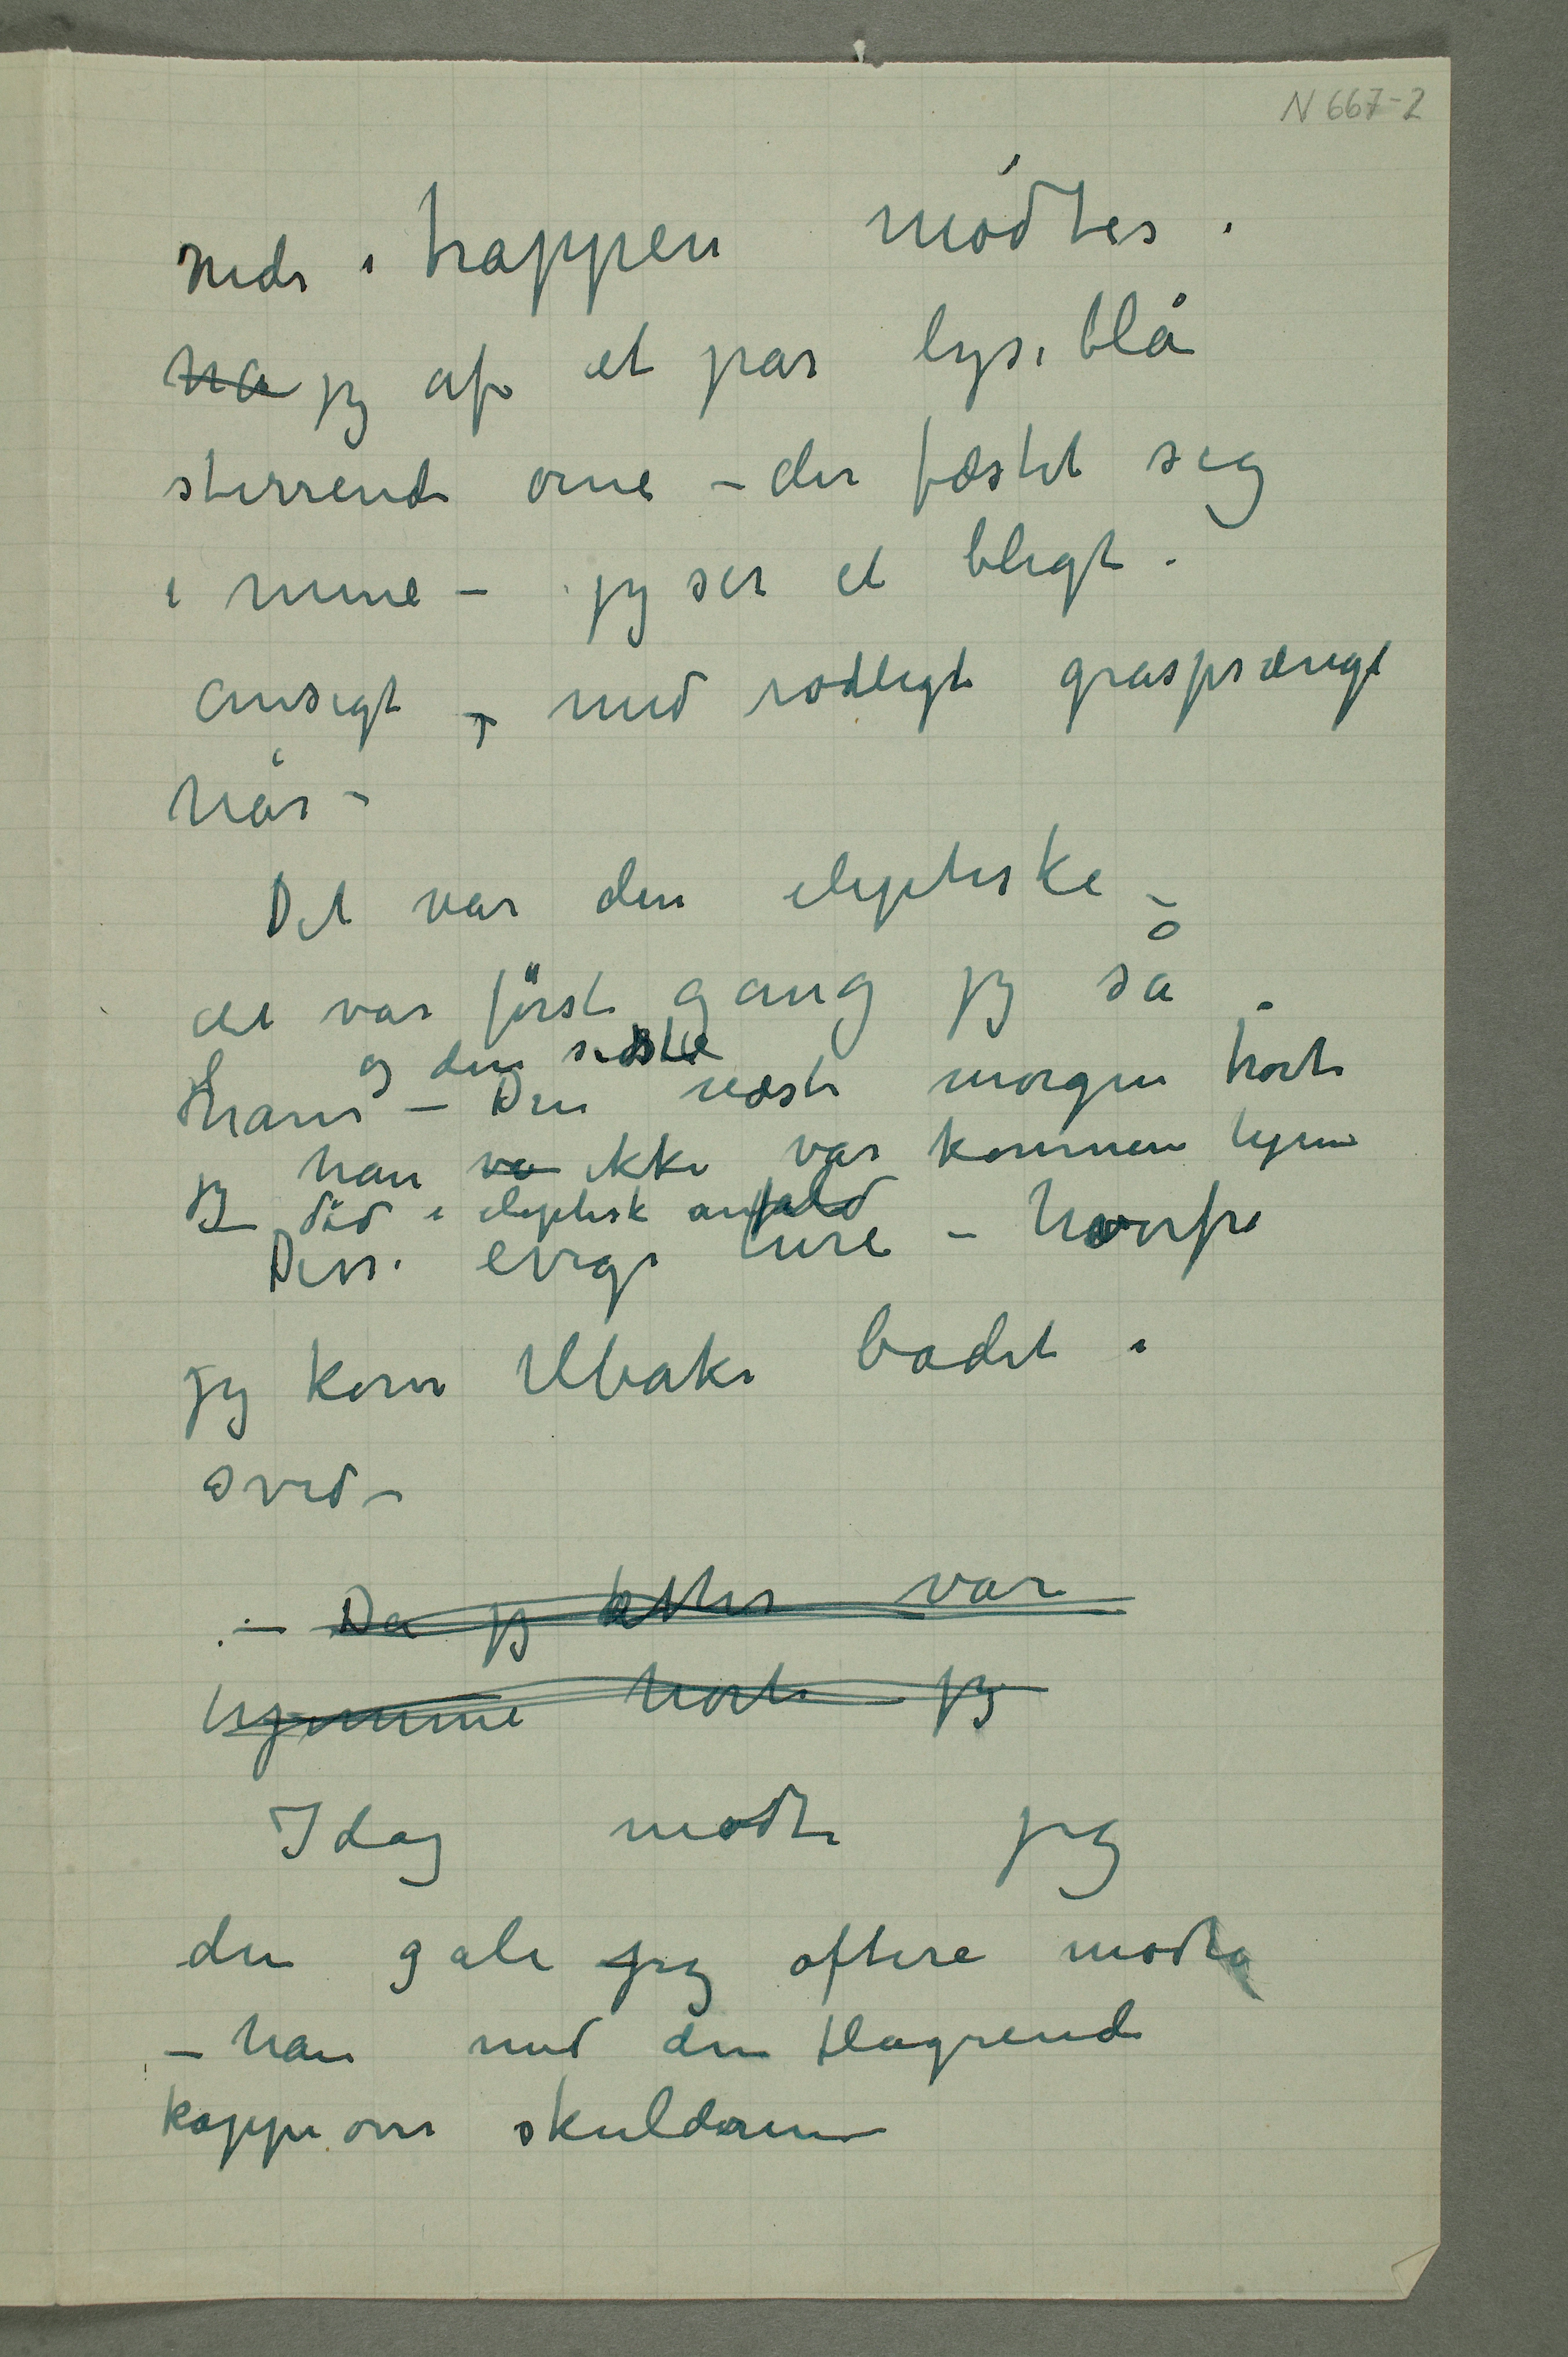 N 667-2
nede i trappen mødtes
ha jeg af et par lyse blå
stirrende øine – der fæstet sig
i mine – jeg ser et blegt
ansigt – med rødligt gråsprængt
hår –
Det var den eleptiske –
det var første gang jeg så
og den sidste
ham – Den næste morgen hørte
jeg han va ikke var kommen hjem
– død i eleptisk anfald
Disse evige ture – hvorfra
jeg kom tilbake badet i
sved –
– Da jeg atter var
hjemme hørte jeg
Idag mødte jeg
den gale jeg oftere mødte
– han med den flagrende
kappe over skulderen